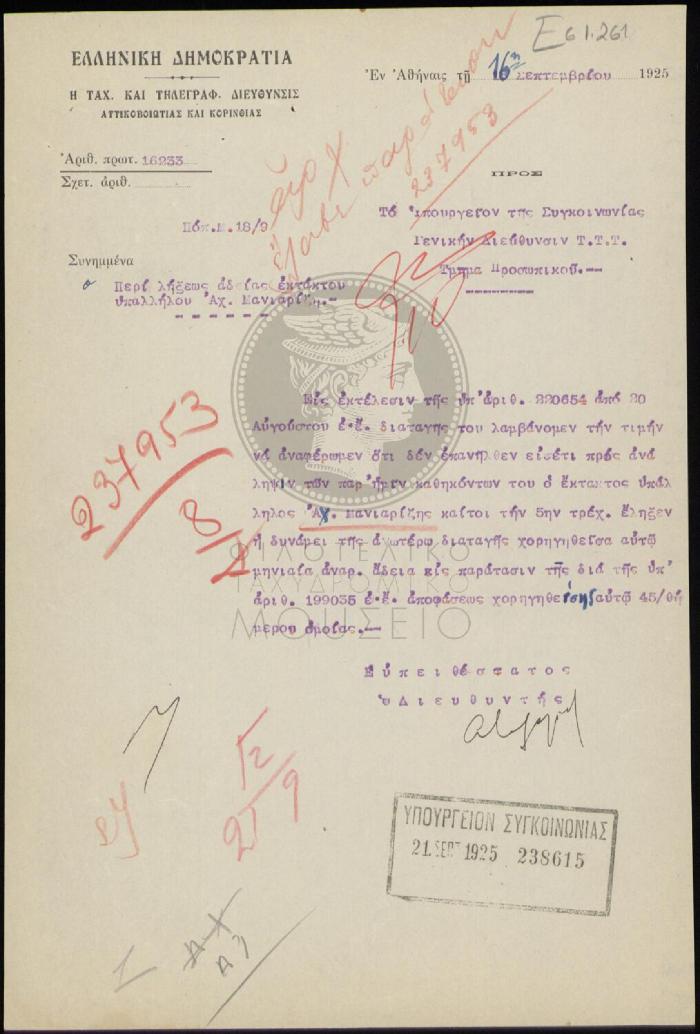 Ε61.261
ΕΛΛΗΝΙΚΗ ΔΗΜΟΚΡΑΤΙΑ
Η ΤΑΧ. ΚΑΙ ΤΗΛΕΓΡΑΦ. ΔΙΕΥΘΥΝΣΙΣ
ΑΤΤΙΚΟΒΟΙΩΤΙΑΣ ΚΑΙ ΚΟΡΙΝΘΙΑΣ
Ἐν Ἀθήναις τῇ 16η Σεπτεμβρίου 1925
Ἀριθ. πρωτ. 16233
Σχετ. ἀριθ.
ἔλαβε παράτασιν
237953
ΠΡΟΣ
Τό Ὑπουργεῖον τῆς Συγκοινωνίας
Γενικήν Διεύθυνσιν Τ.Τ.Τ.
Τμῆμα Προσωπικοῦ.--
Πόπ.Μ.18/9
Συνημμένα
Περί λήξεως ἀδείας ἐκτάκτου
ὑπαλλήλου Ἀχ. Μανιαρίζη.-
Εἰς ἐκτέλεσιν τῆς ὑπ'ἀριθ. 220654 ἀπό 20
Αὐγούστου ἐ.ἔ. διαταγῆς του λαμβάνομεν τήν τιμήν
νά ἀναφέρωμεν ὅτι δέν ἐπανῆλθεν εἰσέτι πρός ἀνά
ληψιν τῶν παρ'ἡμῖν καθηκόντων του ὁ ἔκτακτος ὑπάλ
ληλος Ἀχ. Μανιαρίζης καίτοι τήν 5ην τρέχ. ἔληξεν
ἡ δυνάμει τῆς ἀνωτέρω διαταγῆς χορηγηθεῖσα αὐτῷ
μηνιαία ἀναρ. ἄδεια εἰς παράτασιν τῆς διά τῆς ὑπ'
ἀριθ. 199035 ἐ.ἔ. ἀποφάσεως χορηγηθείσης αὐτῷ 45/θη
μέρου ὁμοίας.--
237953
8/
ΦΙΛΟΤΕΛΙΚΟ
ΤΑΧΥΔΡΟΜΙΚΟ
ΜΟΥΣΕΙΟ
Εὐπειθέστατος
ὁ Διευθυντής
27/9
ΥΠΟΥΡΓΕΙΟΝ ΣΥΓΚΟΙΝΩΝΙΑΣ
21 ΣΕΠΤ 1925 238615